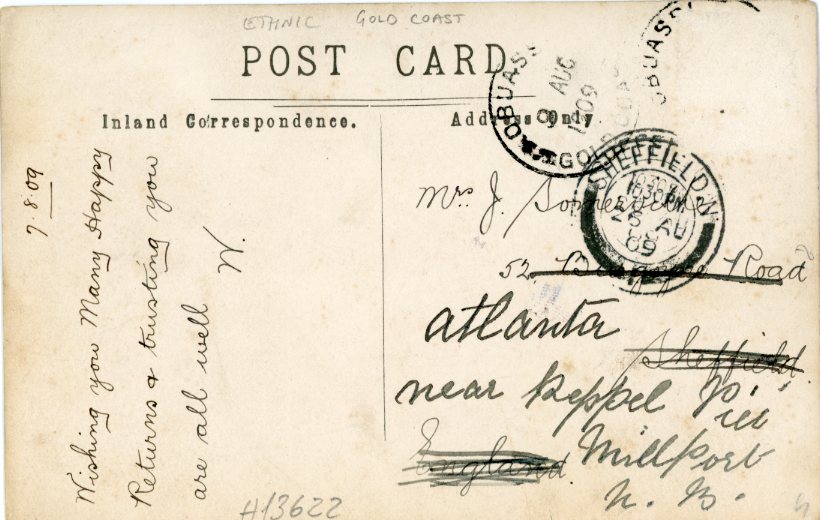 ETHNIC GOLD COAST
POST CARD
Inland Correspondence.
Address Only
OBUASI
9 AUG
1909
GOLD COA
OBUASI
SHEFFIELD
25 AU
09
7.8.09
Wishing you Many Happy
Returns & trusting you
are all well
W.
Mrs J. Somerville
52 Road
Sheffield.
England.
atlanta
near Keppel Pier
Millport
N. B.
A13622